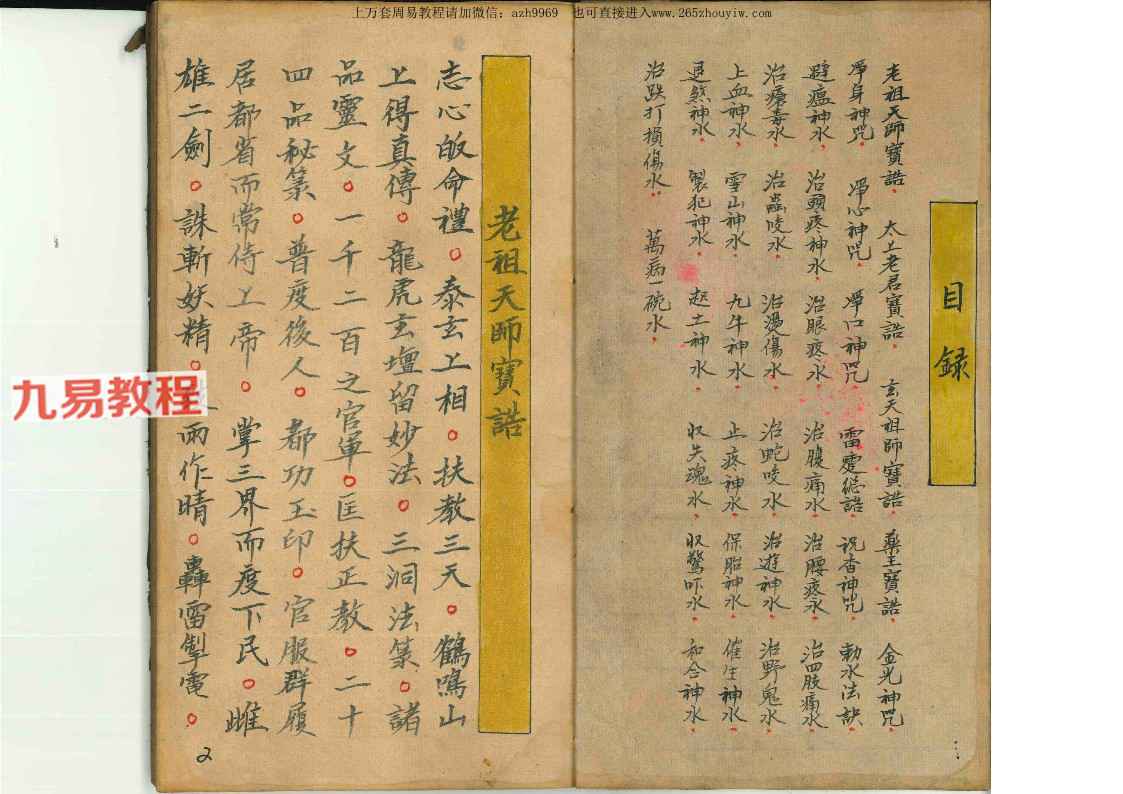 上万套周易教程请加微信：azh9969 也可直接进入www.265zhouyiw.com
目録
老祖天師寶誥 太上老君寶誥 玄天祖師寶誥 藥王寶誥 金光神咒
淨身神咒 淨心神咒 淨口神咒 雷霆總誥 祝香神咒 勅水法訣
避瘟神水 治頭疼神水 治眼疼水 治腹痛水 治腰疼水 治四肢痛水
治瘡毒水 治蟲咬水 治燙傷水 治蛇咬水 治遊神水 治野鬼水
止血神水 雪山神水 九牛神水 止疼神水 保胎神水 催生神水
退煞神水 製犯神水 起土神水 収失魂水 収驚吓水 和合神水
治跌打損傷水 萬病一碗水
老祖天師寶誥
志心皈命禮。泰玄上相。扶教三天。鶴鳴山
上得真傳。龍虎玄壇留妙法。三洞法籙。諸
品靈文。一千二百之官軍。匡扶正教。二十
四品秘籙。普度後人。都功玉印。官服群履
居都省而常侍上帝。掌三界而度下民。雌
雄二劍。誅斬妖精。雨作晴。轟雷掣電。
2
九易教程